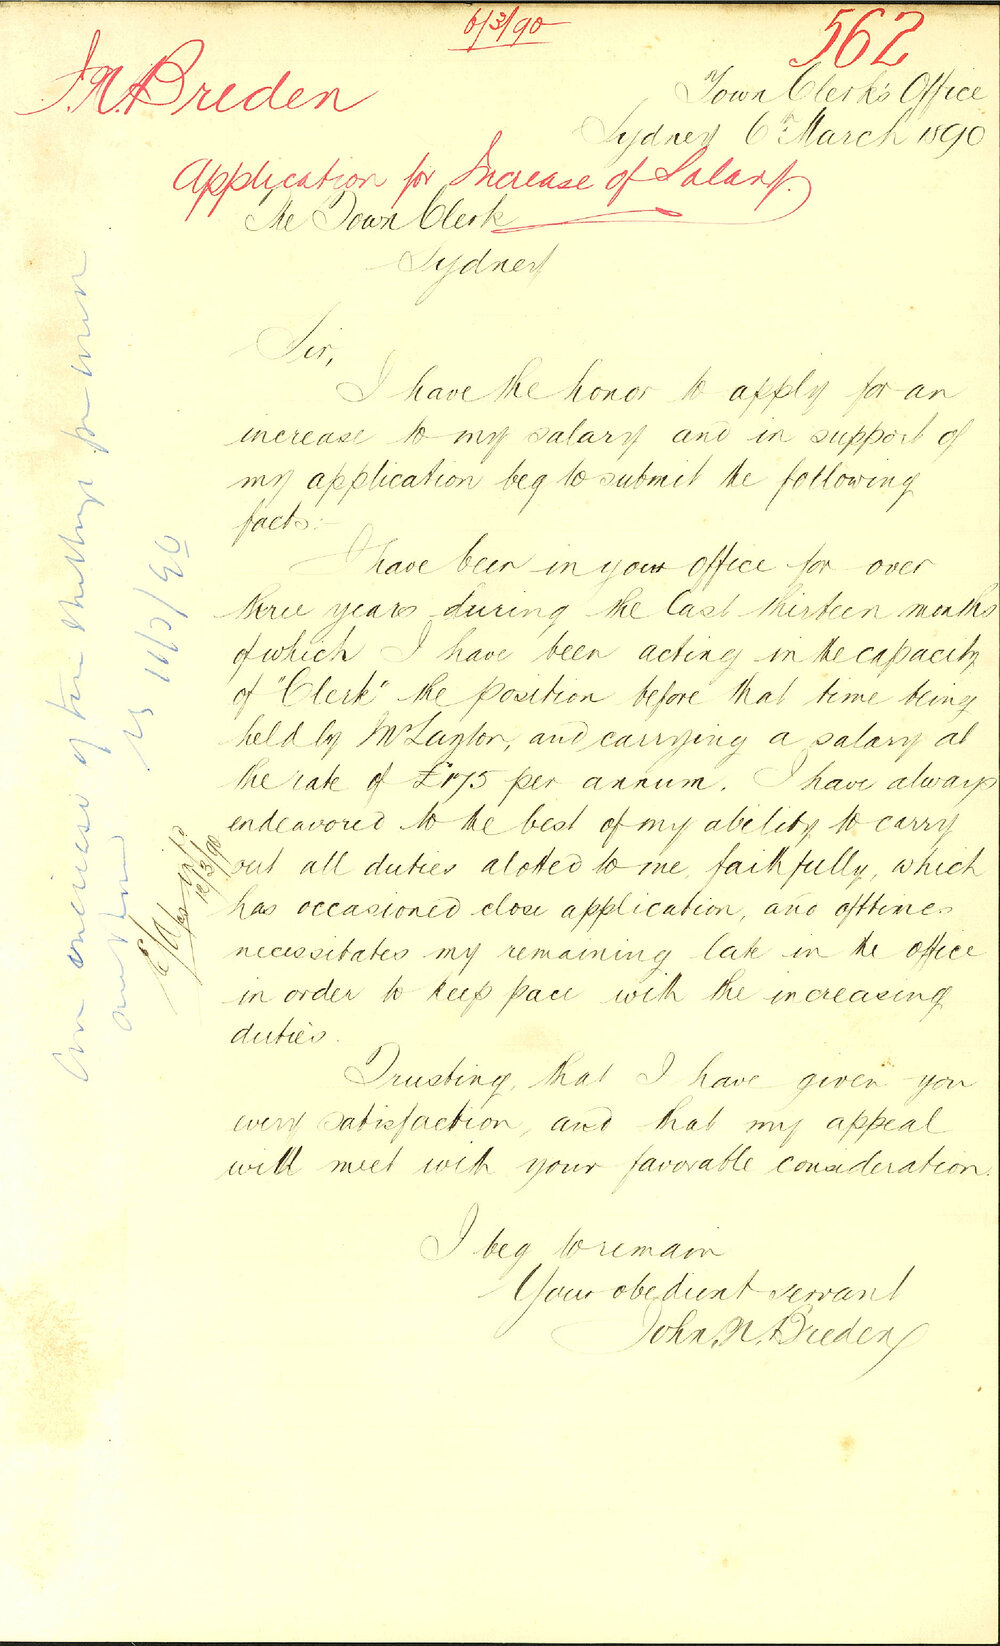 6/3/90
562
J.N. Breden
Town Clerk's Office
Sydney 6th March 1890
Application for Increase of Salary.
The Town Clerk
Sydney
Sir,
I have the honor to apply for an
increase to my salary and in support of
my application beg to submit the following
facts:-
I have been in your office for over
three years during the last thirteen months
of which I have been acting in the capacity
of "Clerk" the position before that time being
held by Mr Layton, and carrying a salary at
the rate of £175 per annum. I have always
endeavored to the best of my ability to carry
out all duties alotted to me, faithfully, which
has occasioned close application, and ofttimes
necessitates my remaining late in the office
in order to keep pace with the increasing
duties.
Trusting, that I have given you
every satisfaction, and that my appeal
will meet with your favorable consideration.
I beg to remain
Your obedient servant
John. N. Breden
An increase of five shillings per week
11/3/90
12/3/90